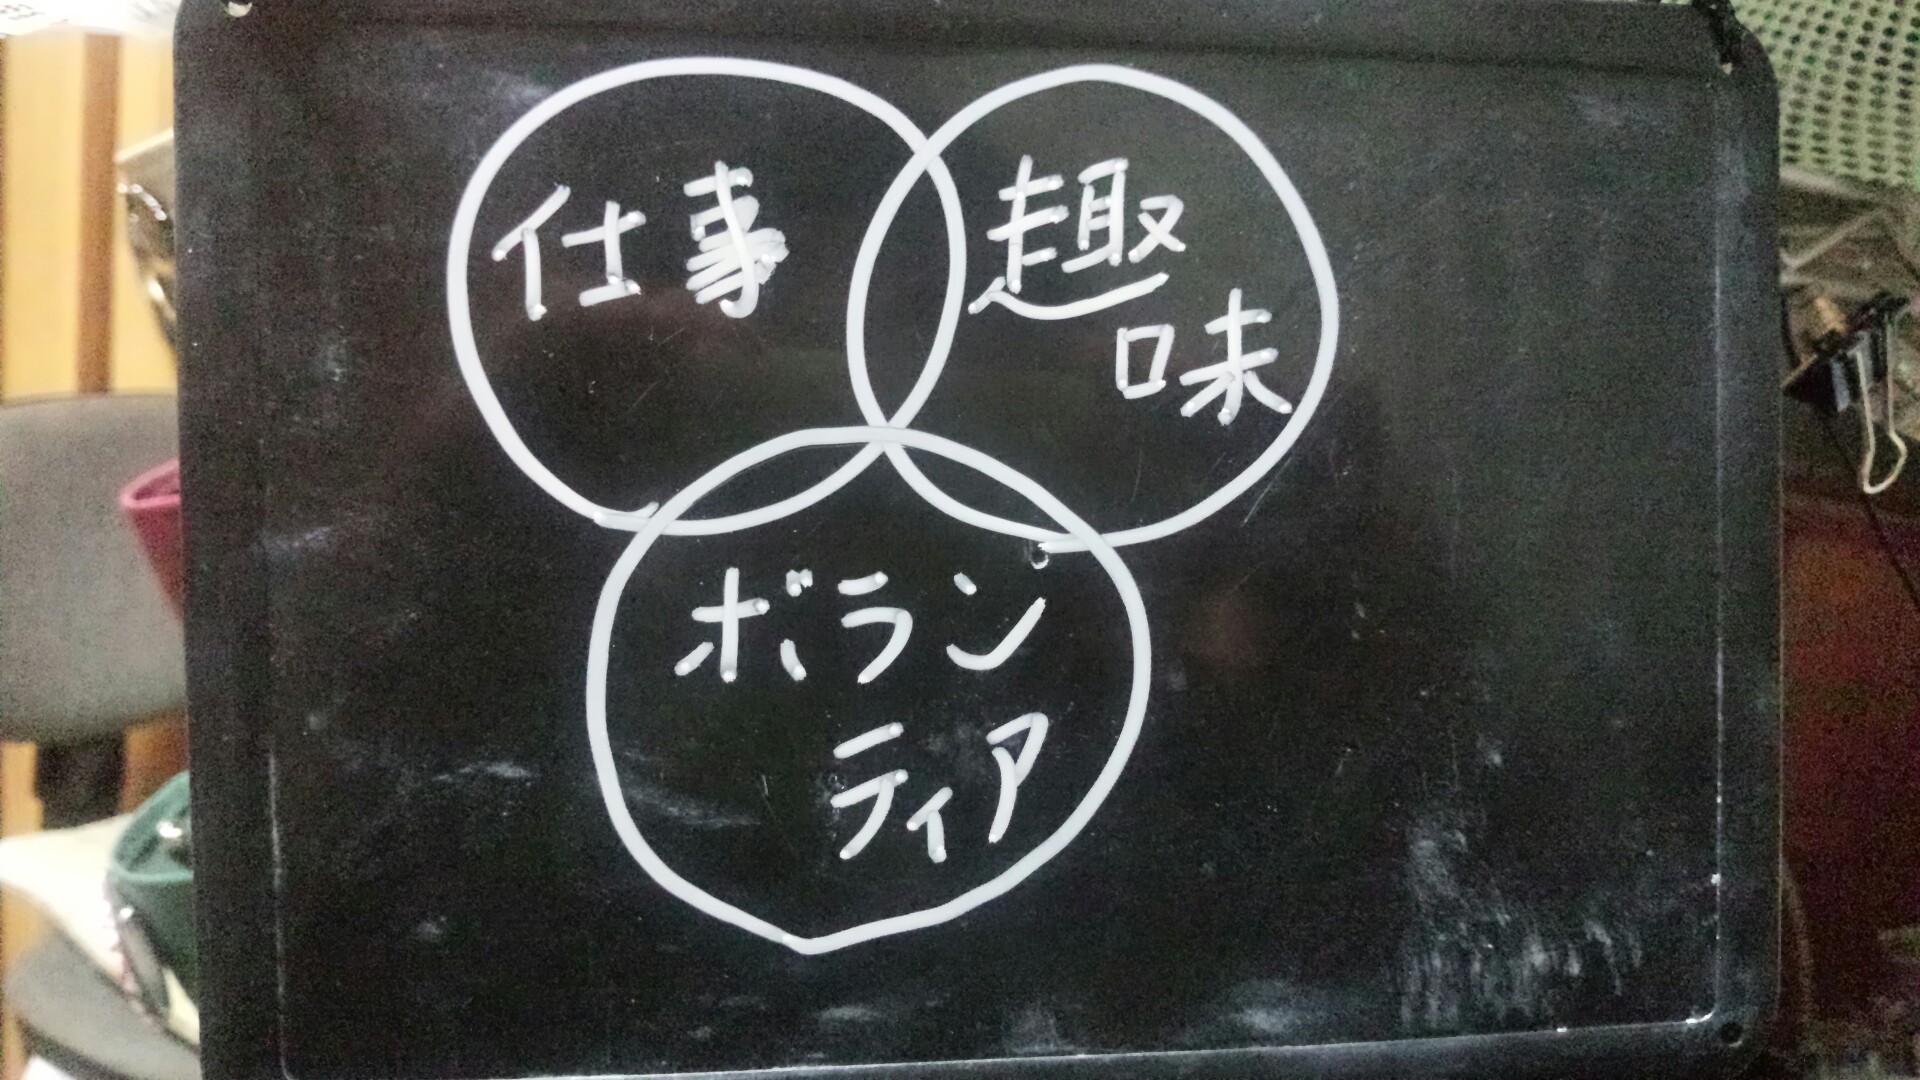 仕事
趣
味
ボラン
ティア